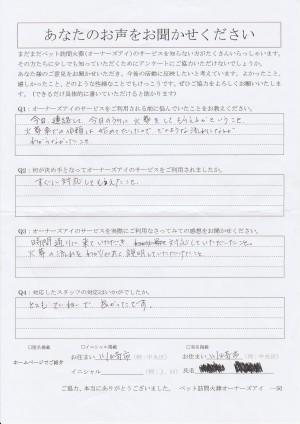 あなたのお声をお聞かせください
まだまだペット訪問火葬（オーナーズアイ）のサービスを知らない方がたくさんいらっしゃいます。
その方たちに少しでも知っていただくためにアンケートにご協力いただけないでしょうか。
あなた様のご意見をお聞かせいただき、今後の活動に反映したいと考えています。よかったこと、
嬉しかったこと、どのような些細なことでもけっこうです。ぜひご協力をよろしくお願いいたします。
（できるだけ具体的に書いていただけると助かります）
Q1：オーナーズアイのサービスをご利用される前に悩んでいたことをお教えください。
今日連絡して、今日のうちに火葬をしてもらえるかということ。
火葬車での
わからなかったこと
Q2：何が決め手となってサービスをご利用されましたか。
すぐに対応してもらえたこと。
Q3：オーナーズアイのサービスを実際にご利用なさってみての感想をお聞かせください。
時間通りに来ていただき 対応していただいたこと。
火葬の流れをわかりやすく説明していただけたこと
Q4：対応したスタッフの対応はいかがでしたか。
とてもていねいで 良かったです。
□匿名掲載 □イニシャル掲載 □実名掲載
お住まい 川崎市 （例：中央区） お住まい 川崎市 （例：中央区）
ホームページでご紹介
イニシャル （例：J．M） 氏名
ご協力、本当にありがとうございました。 ペット訪問火葬オーナーズアイ —50